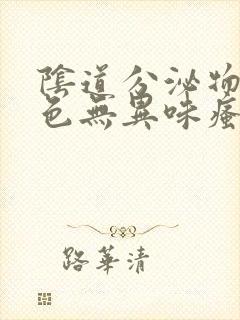 陰道分泌物
色無異味瘙
路華清